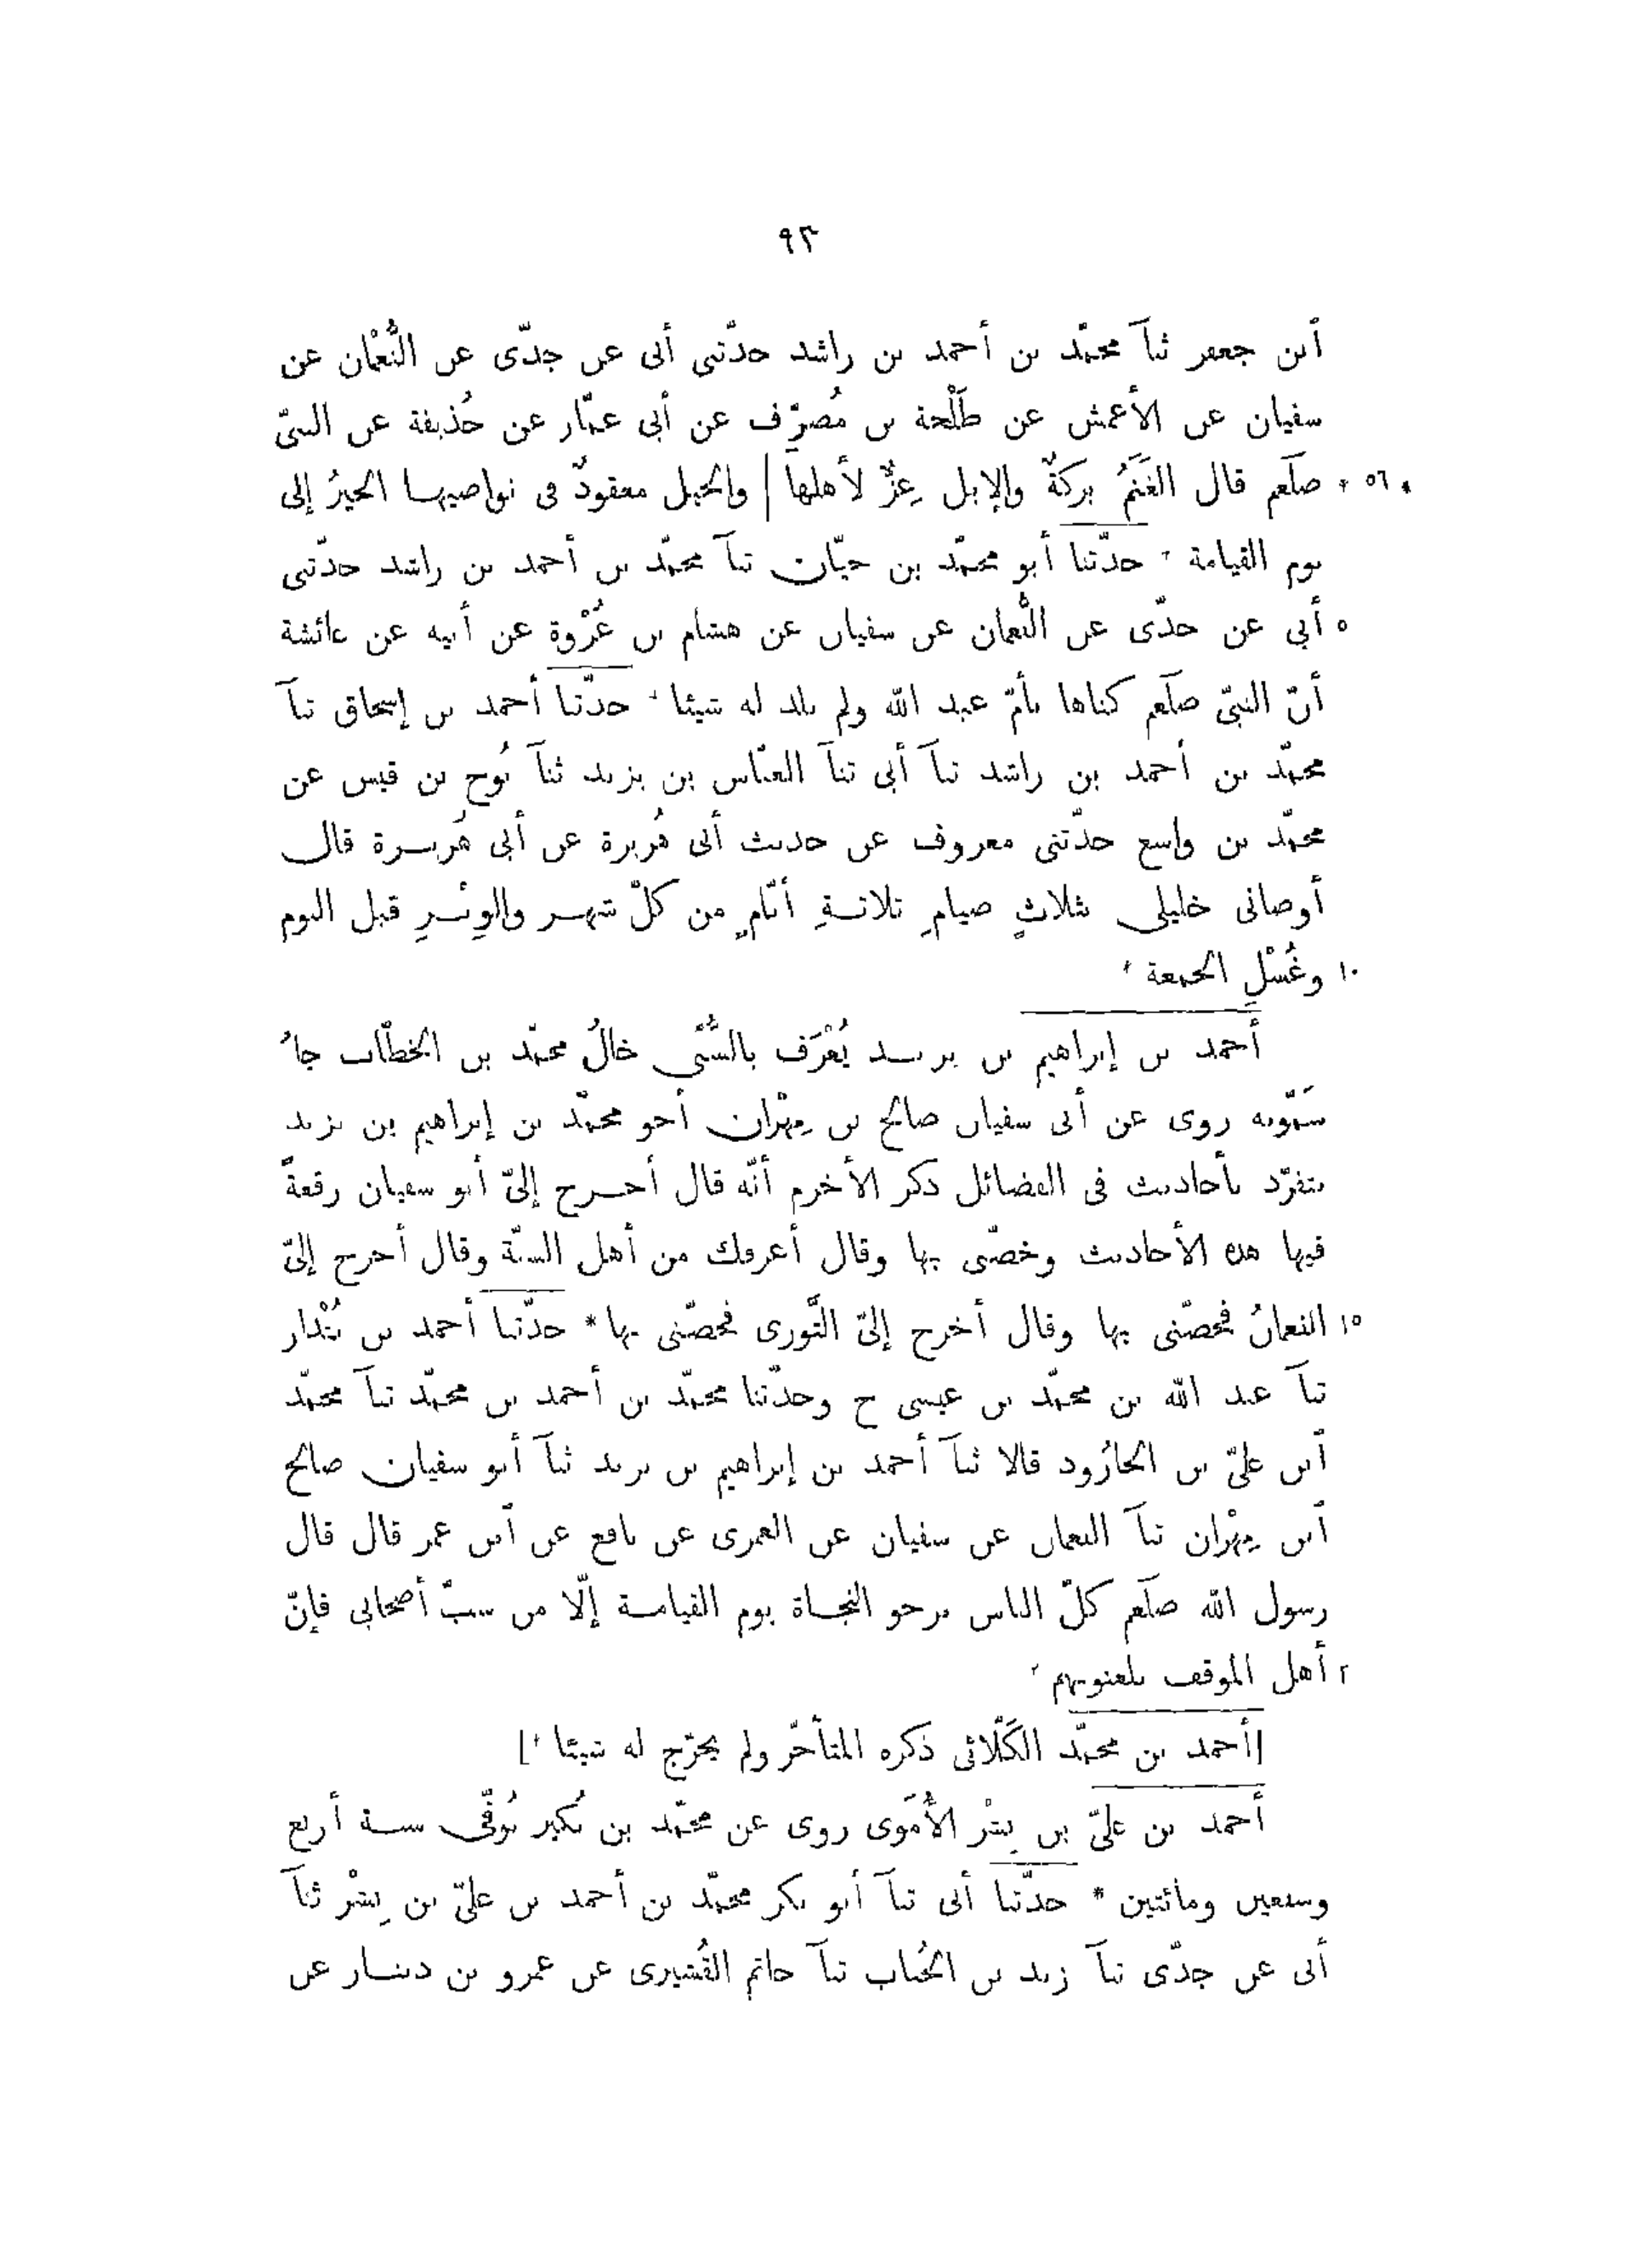 ٩٢
ٱبن جعفر ثنآ محمّد بن أحمد بن راشد حدّثنى أبى عن جدّى عن النُّعْمان عن
سفيان عن الأعمش عن طَلْحة بن مُصرِّف عن أبى عمّار عن حُذيفة عن النبىّ
*٥٦* صلّعم قال الغَنَمُ بركةٌ والإبل عِزٌّ لأهلها | والخيل معقودٌ فى نواصيها الخيرُ إلى
يوم القيامة * حدّثنا أبو محمّد بن حيّان ثنآ محمّد بن أحمد بن راشد حدّثنى
٥ أبى عن جدّى عن النُّعمان عن سفيان عن هشام بن عُرْوة عن أبيه عن عائشة
أنّ النبىّ صلّعم كناها بأمّ عبد الله ولم يلد له شيئا * حدّثنا أحمد بن إسحاق ثنآ
محمّد بن أحمد بن راشد ثنآ أبى ثنآ العبّاس بن يزيد ثنآ نُوح بن قيس عن
محمّد بن واسع حدّثنى معروف عن حديث أبى هُريرة عن أبى هُريرة قال
أوصانى خليلى بثلاثٍ صيامِ ثلاثةِ أيّامٍ من كلّ شهر والوِتْرِ قبل النوم
١٠ وغُسْلِ الجمعة *
أحمد بن إبراهيم بن يزيد يُعْرَف بالسُّنّى خالُ محمّد بن الخطّاب جار
سَمّويه روى عن أبى سفيان صالح بن مِهْران أخو محمّد بن إبراهيم بن يزيد
يتفرّد بأحاديث فى الفضائل ذكر الأخرم أنّه قال أخرج إلىّ أبو سفيان رقعةً
فيها هذه الأحاديث وخصّنى بها وقال أعرفك من أهل السنّة وقال أخرج إلىّ
١٥ النعمانُ فخصّنى بها وقال أخرج إلىّ الثَّورى فخصّنى بها * حدّثنا أحمد بن بُنْدار
ثنآ عبد الله بن محمّد بن عيسى ح وحدّثنا محمّد بن أحمد بن محمّد ثنآ محمّد
ٱبن علىّ بن الجارُود قالا ثنآ أحمد بن إبراهيم بن يزيد ثنآ أبو سفيان صالح
ٱبن مِهْران ثنآ النعمان عن سفيان عن العمرى عن نافع عن ٱبن عمر قال قال
رسول الله صلّعم كلّ الناس يرجو النجاة يوم القيامة إلّا من سبّ أصحابى فإنّ
٢ أهل الموقف يلعنونهم *
[أحمد بن محمّد الكَلّائى ذكره المتأخّر ولم يخرّج له شيئا *]
أحمد بن علىّ بن بِشْر الأُمَوى روى عن محمّد بن بُكير تُوفّى سنة أربع
وسبعين ومائتين * حدّثنا أبى ثنآ أبو بكر محمّد بن أحمد بن علىّ بن بِشْر ثنآ
أبى عن جدّى ثنآ زيد بن الحُباب ثنآ حاتم القُشيرى عن عمرو بن دينار عن